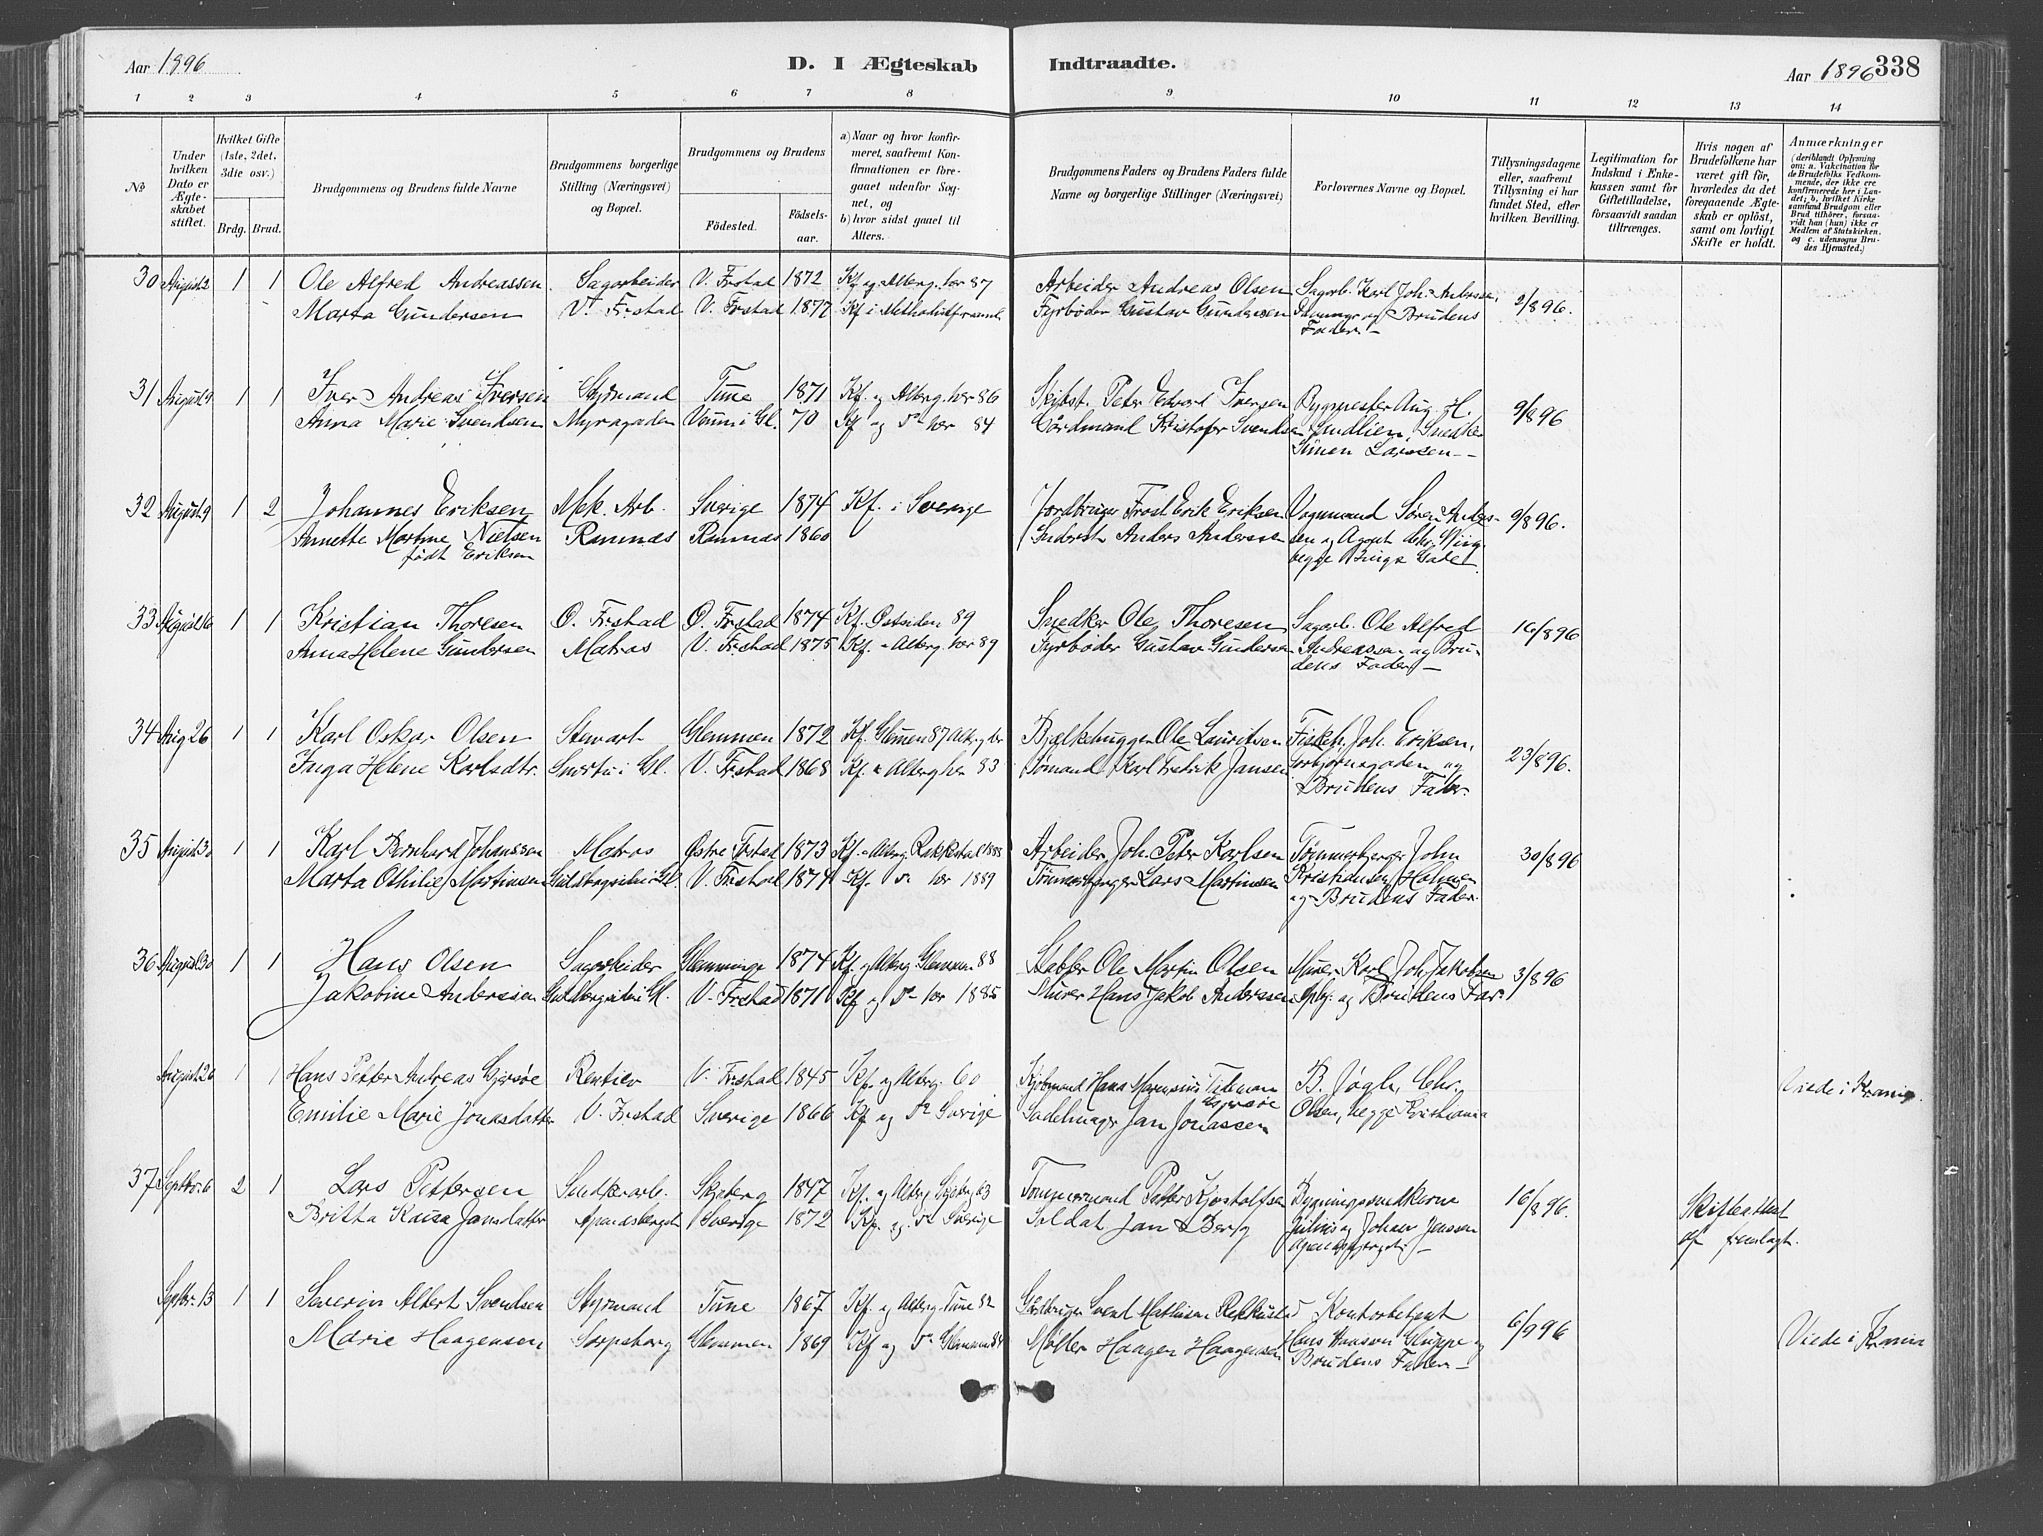 Aar 1896
D. I Ægteskab Indtraadte.
Aar 1896 338
1 2 3 4 5 6 7 8 9 10 11 12 13 14
No
Under hvilken Dato er Ægteskabet stiftet.
Hvilket Gifte (1ste, 2det, 3die osv.)
Brdg. Brud.
Brudgommens og Brudens fulde Navne
Brudgommens borgerlige Stilling (Næringsvei) og Bopæl.
Brudgommens og Brudens
Fødested. Fødselsaar.
a) Naar og hvor konfirmeret, saafremt Konfirmationen er foregaaet udenfor Sognet, og
b) hvor sidst gaaet til Alters.
Brudgommens Faders og Brudens Faders fulde Navne og borgerlige Stillinger (Næringsvei)
Forlovernes Navne og Bopæl.
Tillysningsdagene eller, saafremt Tillysning ei har fundet Sted, efter hvilken Bevilling.
Legitimation for Indskud i Enkekassen samt for Giftetilladelse, forsaavidt saadan tiltrænges.
Hvis nogen af Brudefolkene har været gift før, hvorledes da det foregaaende Ægteskab er opløst, samt om lovligt Skifte er holdt.
Anmærkninger
(deriblandt Oplysning om: a. Vakcination for de Brudefolks Vedkommende, der ikke ere konfirmerede her i Landet; b. hvilket Kirkesamfund Brudgom eller Brud tilhører, forsaavidt han (hun) ikke er Medlem af Statskirken. og c. udensogns Brudes Hjemsted.)
30 August 2 1 1 Ole Alfred Andreassen Sagarbeider V. Frstad 1872 Kf. og Alterg. her 87 Arbeider Andreas Olsen Sagarb. Karl Joh. 2/8 96.
Marta Gundersen V. Frstad V. Frstad 1877 Kf i Methodist Fyrbøder Gustav Gundersen og Brudens
Fader
31 August 9 1 1 Iver Andreas Iversen Styrmand Tune 1871 Kf. og Alterg. her 86 Skibst. Peter Edvard Iversen Bygmester Aug. H. 9/8 96
Anna Marie Svendsen Myragaden 70 Kf og do her 84 Kristofer Svendsen
Simen Larssen
32 August 9 1 2 Johannes Eriksen Mek. Arb. Sverige 1874 Kf. i Sverige Erik Eriksen Vognmand Søren Anders- 9/8 96.
Annette Martine Nielsen Ramnæs Ramnæs 1860 Inderst Anders Anderssen sen og Agent
født Eriksen begge Gade
33 August 16 1 1 Kristian Thoresen O. Frstad O. Frstad 1874 Kf. Østsiden 89 Snedker Ole Thoresen Sagarb. Ole Alfred 16/8 96
Anna Helene Gundersen Matros V. Frstad 1875 Kf. Alterg. her 89 Fyrbøder Gustav Gundersen Andreassen og Bru-
dens Fader
34 Aug 26 1 1 Karl Oskar Olsen Stewart Glemmen 1872 Kf. Glemmen 87 Alterg. her Bjælkehugger Ole Lauritsen Joh. Eriksen, 23/8 96.
Inga Helene Karlsdtr. i Gl. V. Frstad 1868 Kf. Alterg. her 83 Sømand Karl Fredrik Jansen og
Brudens Fader.
35 August 30 1 1 Karl Bernhard Johanssen Matros Østre Frstad 1873 Kf. Alterg. Rakkestad 1888 Arbeider Joh. Peter Karlsen John 30/8 96
Marta Othilie Martinsen V. Frstad 1874 Kf. do her 1889 Lars Martinsen Kristiansen Holmen
og Brudens Fader
36 August 30 1 1 Hans Olsen Sagarbeider Glemminge 1874 Kf. og Alterg. Glemmen 88 Ole Martin Olsen Murer Karl Joh. Jakobsen 3/896
Jakobine Anderssen V. Frstad 1871 Kf og do her 1885 Murer Hans Jakob Anderssen og Brudens Far
August 26 1 1 Hans Petter Andreas Gjersøe Rentier V. Frstad 1845 Kf. og Alterg. 60 Kjøbmand Hans Tileman B. Jøgh, Chr. Viede i Krania.
Gjersøe
Emilie Marie Jonasdatter V. Frstad Sverige 1866 Kf og do Sverige Jan Jonassen Olsen, begge Kristiania
37 Septbr. 6 2 1 Lars Pettersen Snedkerarb. Skjeberg 1847 Kf. og Alterg. 63 Tømmermand Petter 16/8 96. Skifteattest
Britta Kaisa Jansdatter Sverige 1872 Kf. og do Sverige Soldat Jan Berg Julius og Johan Jenssen fremlagt.
Septbr. 13 1 1 Severin Albert Svendsen Styrmand Tune 1867 Kf. og Alterg. Tune 82 Svend Mathisen Kontorbetjent 6/9 96 Viede i Krania
Marie Haagensen Sarpsborg Glemmen 1869 Kf og do Glemmen 84 Møller Haagen Haagensen Hans Hansen og
Brudens Fader